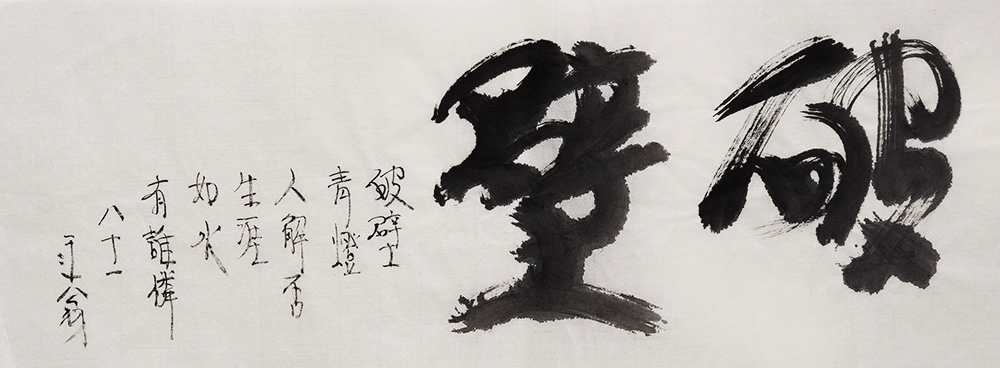 破壁
破壁
青燈
人解否
生涯
如水
有誰憐
八十一
翁